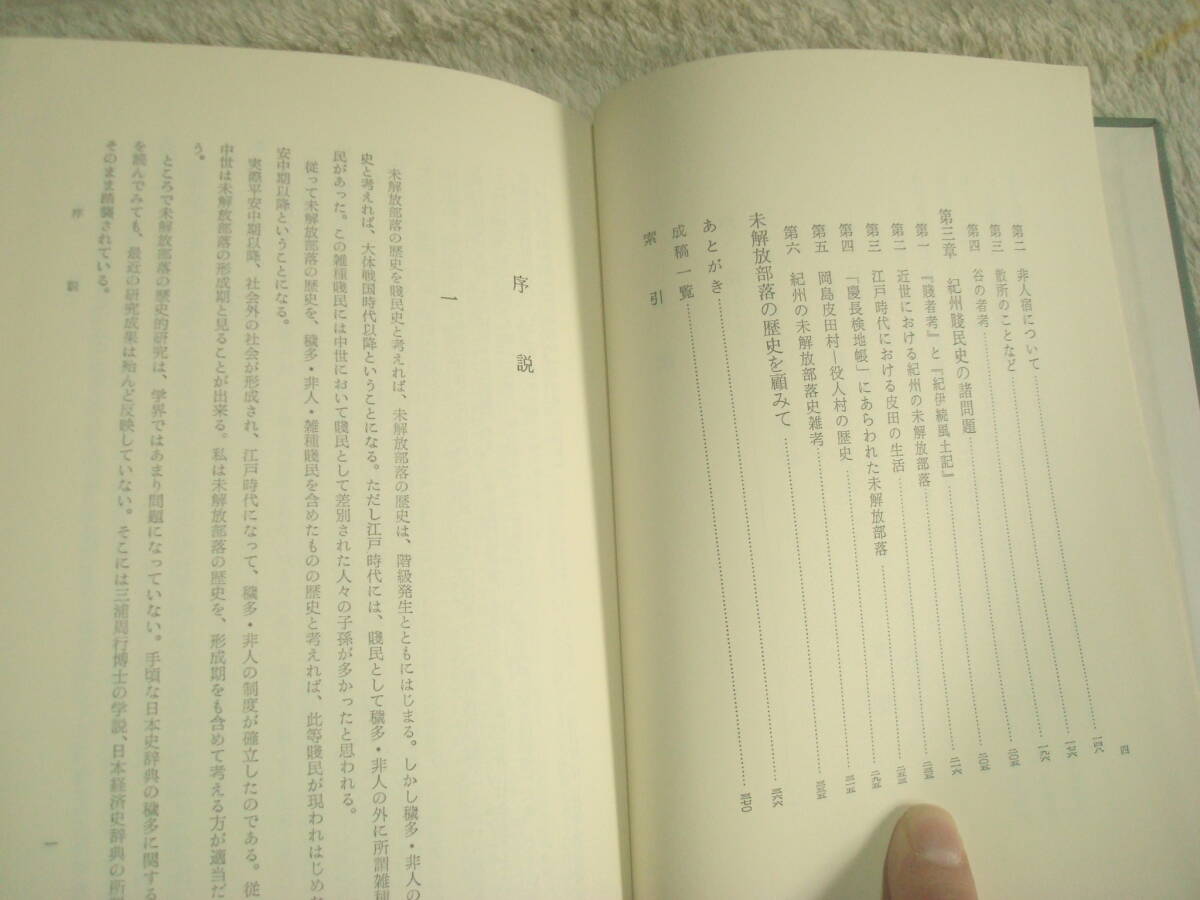 四
第二 非人宿について
第三 散所のことなど
第四 谷の者考
第三章 紀州賤民史の諸問題
第一 『賤者考』と『紀伊続風土記』
第二 近世における紀州の未解放部落
第三 江戸時代における皮田の生活
第四 『慶長検地帳』にあらわれた未解放部落
第五 岡島皮田村―役人村の歴史
第六 紀州の未解放部落史雑考
未解放部落の歴史を顧みて
あとがき
成稿一覧
索引
序説
一
未解放部落の歴史を賤民史と考えれば、未解放部落の歴史は、階級発生とともにはじまる。しかし穢多・非人の
史と考えれば、大体戦国時代以降ということになる。ただし江戸時代には、賤民として穢多・非人の外に所謂雑種
民があった。この雑種賤民には中世において賤民として差別された人々の子孫が多かったと思われる。
従って未解放部落の歴史を、穢多・非人・雑種賤民を含めたものの歴史と考えれば、此等賤民が現われはじめ
安中期以降ということになる。
実際平安中期以降、社会外の社会が形成され、江戸時代になって、穢多・非人の制度が確立したのである。従
中世は未解放部落の形成期と見ることが出来る。私は未解放部落の歴史を、形成期をも含めて考える方が適当だ
う。
ところで未解放部落の歴史的研究は、学界ではあまり問題になっていない。手頃な日本史辞典の穢多に関する
を読んでみても、最近の研究成果は殆んど反映していない。そこには三浦周行博士の学説、日本経済史辞典の所
そのまま踏襲されている。
序説
一